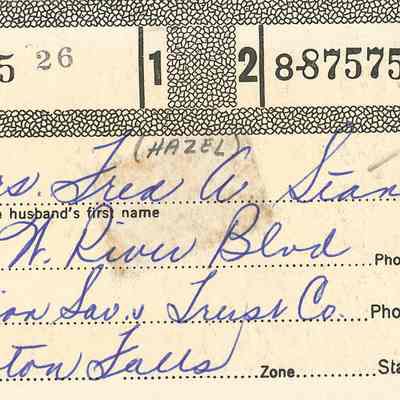 5 26 1 2 8-87575
(HAZEL)
rs. Fred A Stan
husband's first name
W. River Blvd Pho
ion Sav. & Trust Co. Pho
ton Falls Zone Sta